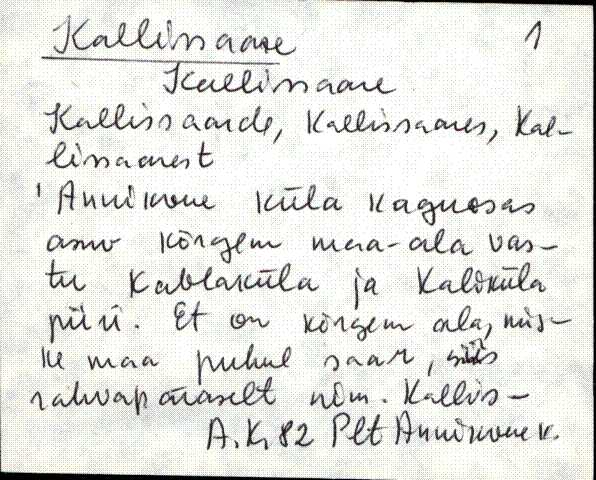 Kallissaare 1
Kallissaare
Kallissaarde, Kallissaares, Kal-
lissaarest
' Annikvere küla kaguosas
asuv kõrgem maa-ala vas-
tu Kablaküla ja Kaliküla
piiri. Et on kõrgem ala, niis-
ke maa puhul saar, siis
rahvapäraselt nim. Kallis-
A.K. 82 Plt Annikvere k.